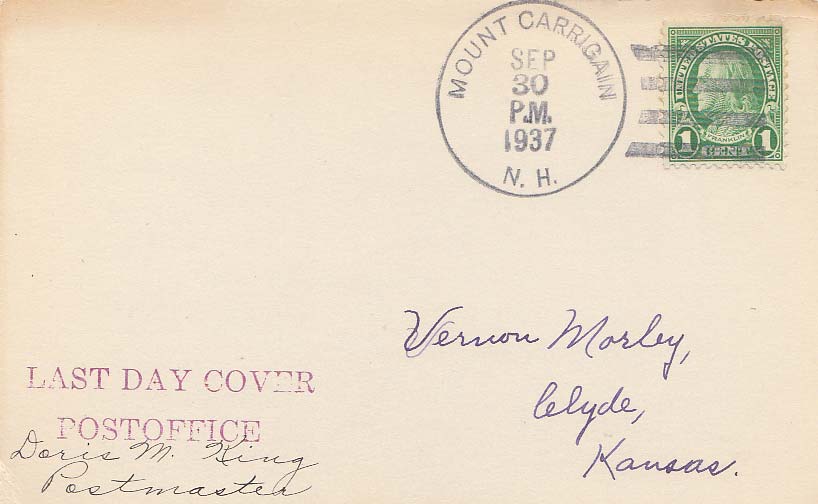 MOUNT CARRIGAIN
SEP
30
P.M.
1937
N. H.
UNITED STATES POSTAGE
FRANKLIN
1 CENT 1
Vernon Morley,
Clyde,
Kansas.
LAST DAY COVER
POSTOFFICE
Doris M. King
Postmaster